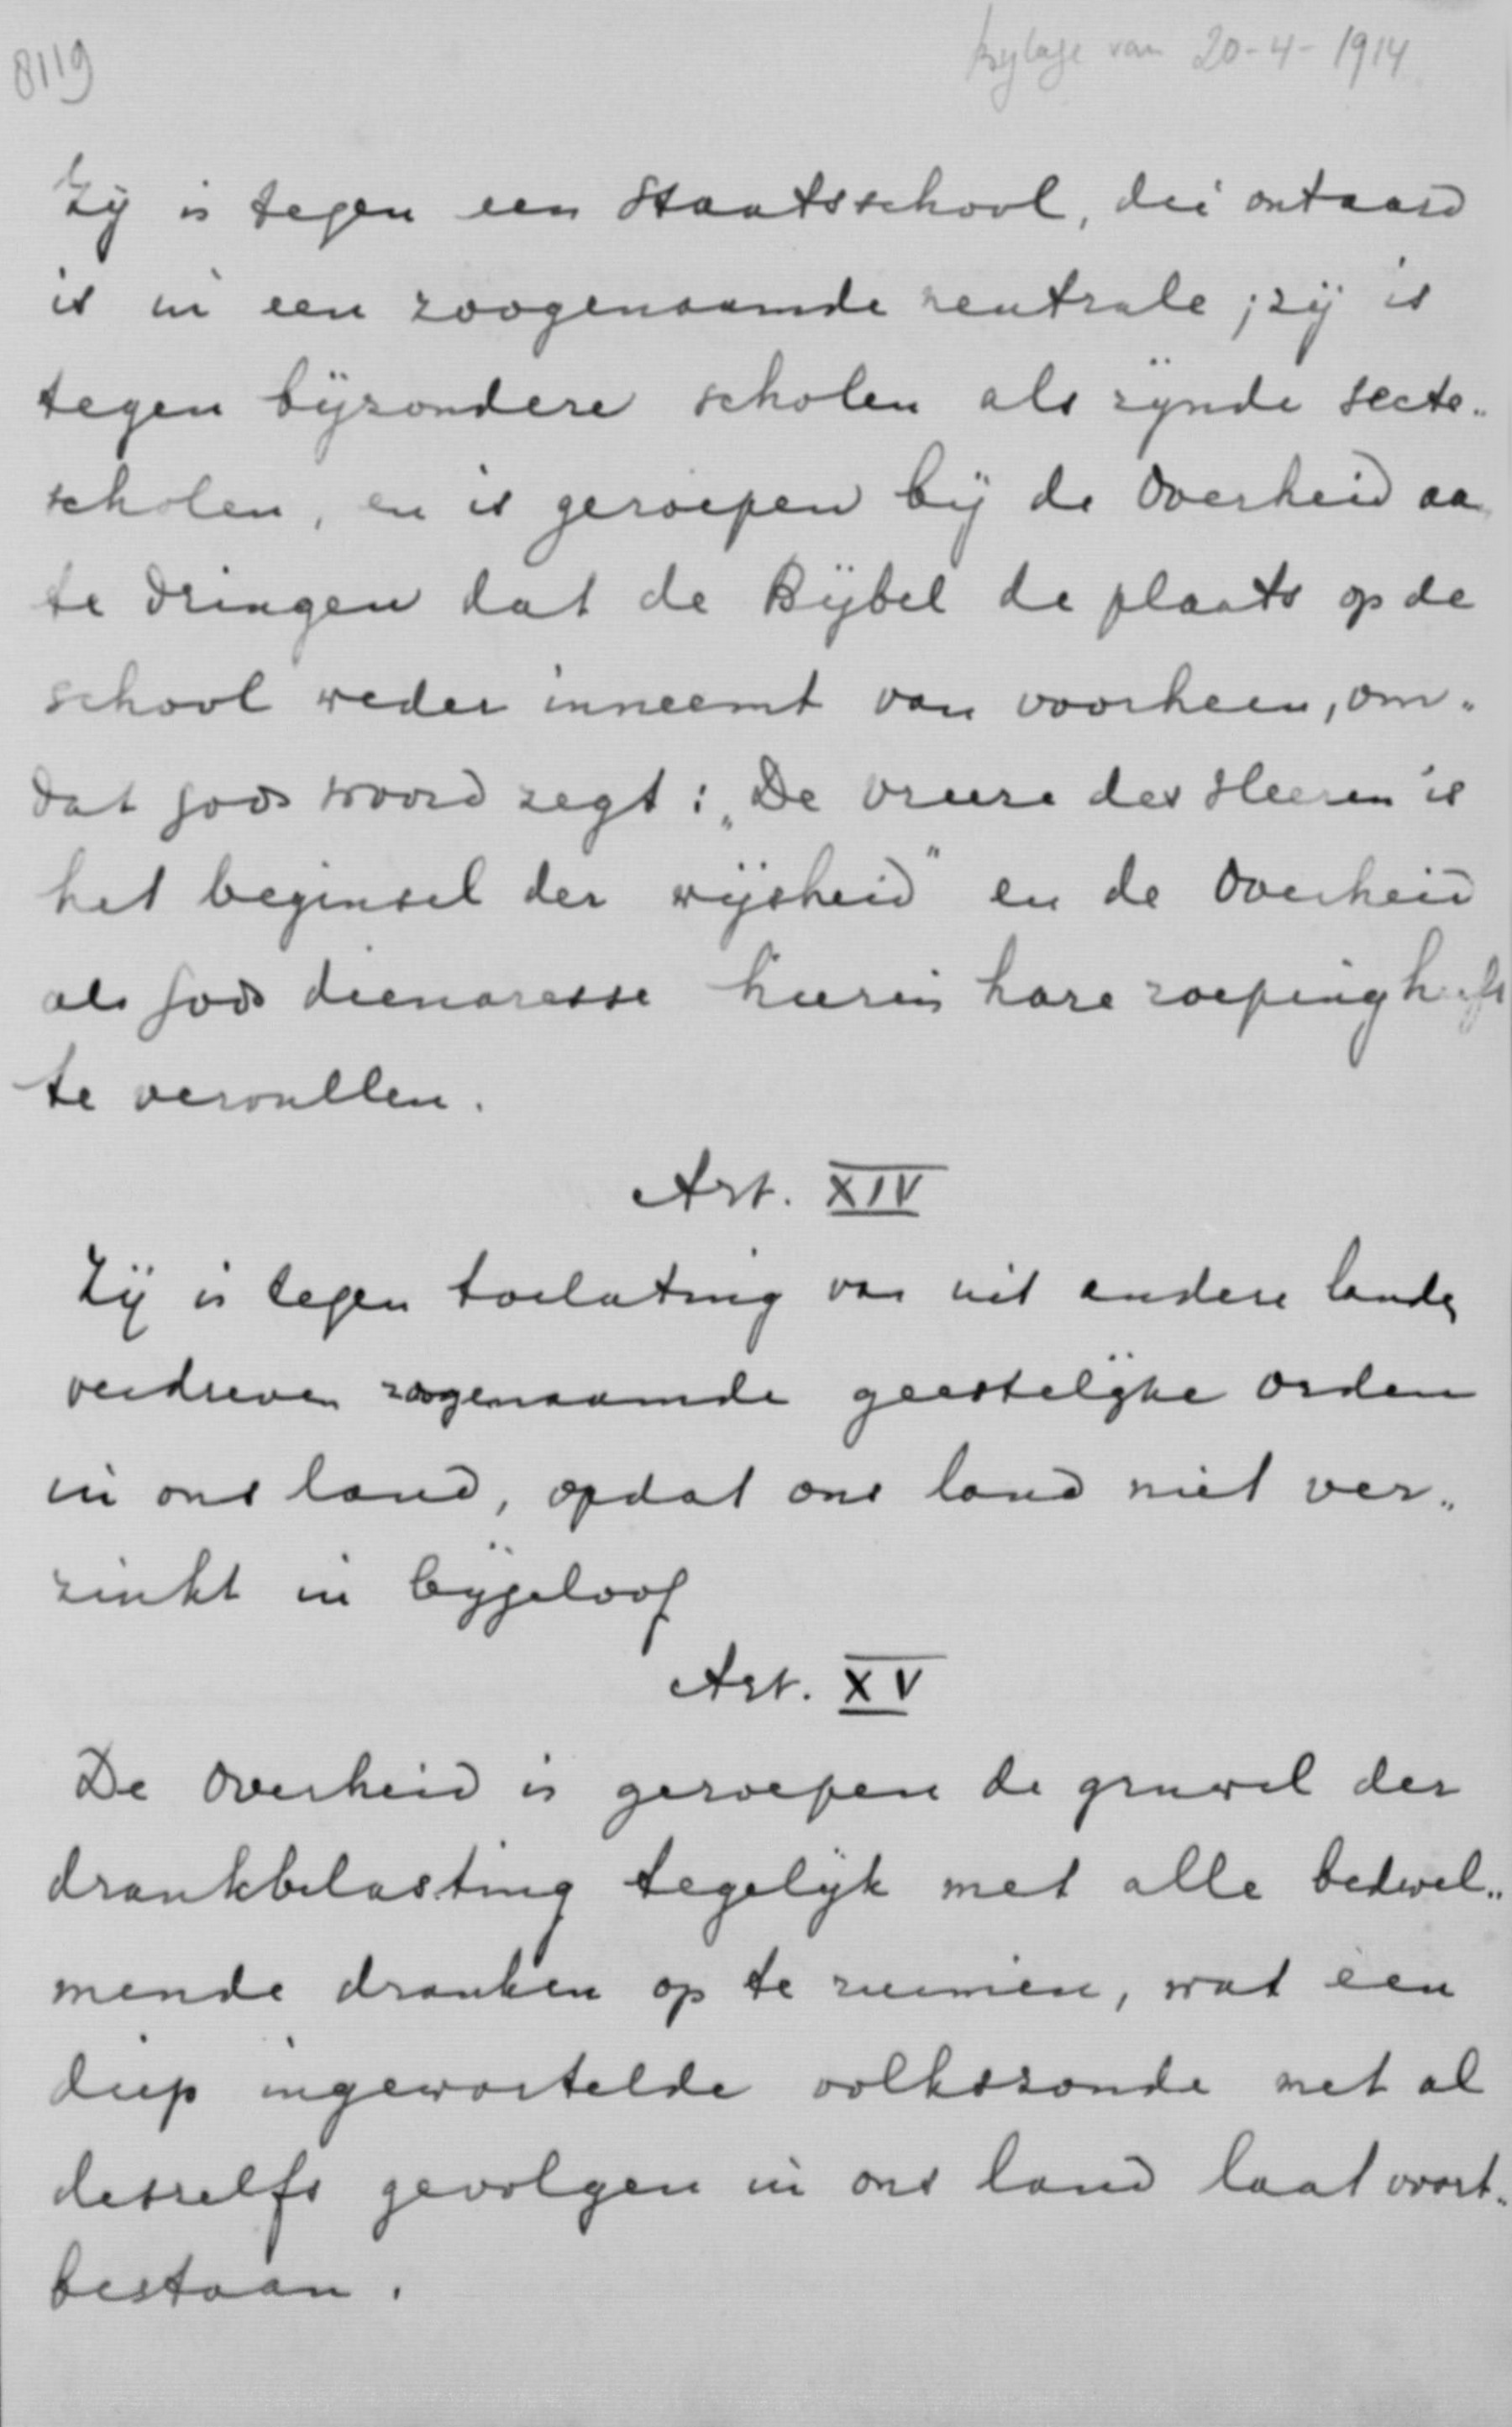 8119
bylage van 20-4-1914
Zij is tegen een Staatsschool, die ontaard
is in een zoogenaamde neutrale; zij is
tegen bijzondere scholen als zijnde secte„
scholen, en is geroepen bij de Overheid aan
te dringen dat de Bijbel de plaats op de
school weder inneemt van voorheen, om„
dat Gods woord zegt: „De vreeze des Heeren is
het beginsel der wijsheid" en de Overheid
als Gods dienaresse hierin hare roeping heeft
te vervullen.
Art. XIV
Zij is tegen toelating van uit andere landen
verdreven zoogenaamde geestelijke orden
in ons land, opdat ons land niet ver„
zinkt in bijgeloof
Art. XV
De Overheid is geroepen de gruwel der
drankbelasting tegelijk met alle bedwel„
mende dranken op te ruimen, wat een
diep ingewortelde volkszonde met al
deszelfs gevolgen in ons land laat voort„
bestaan.